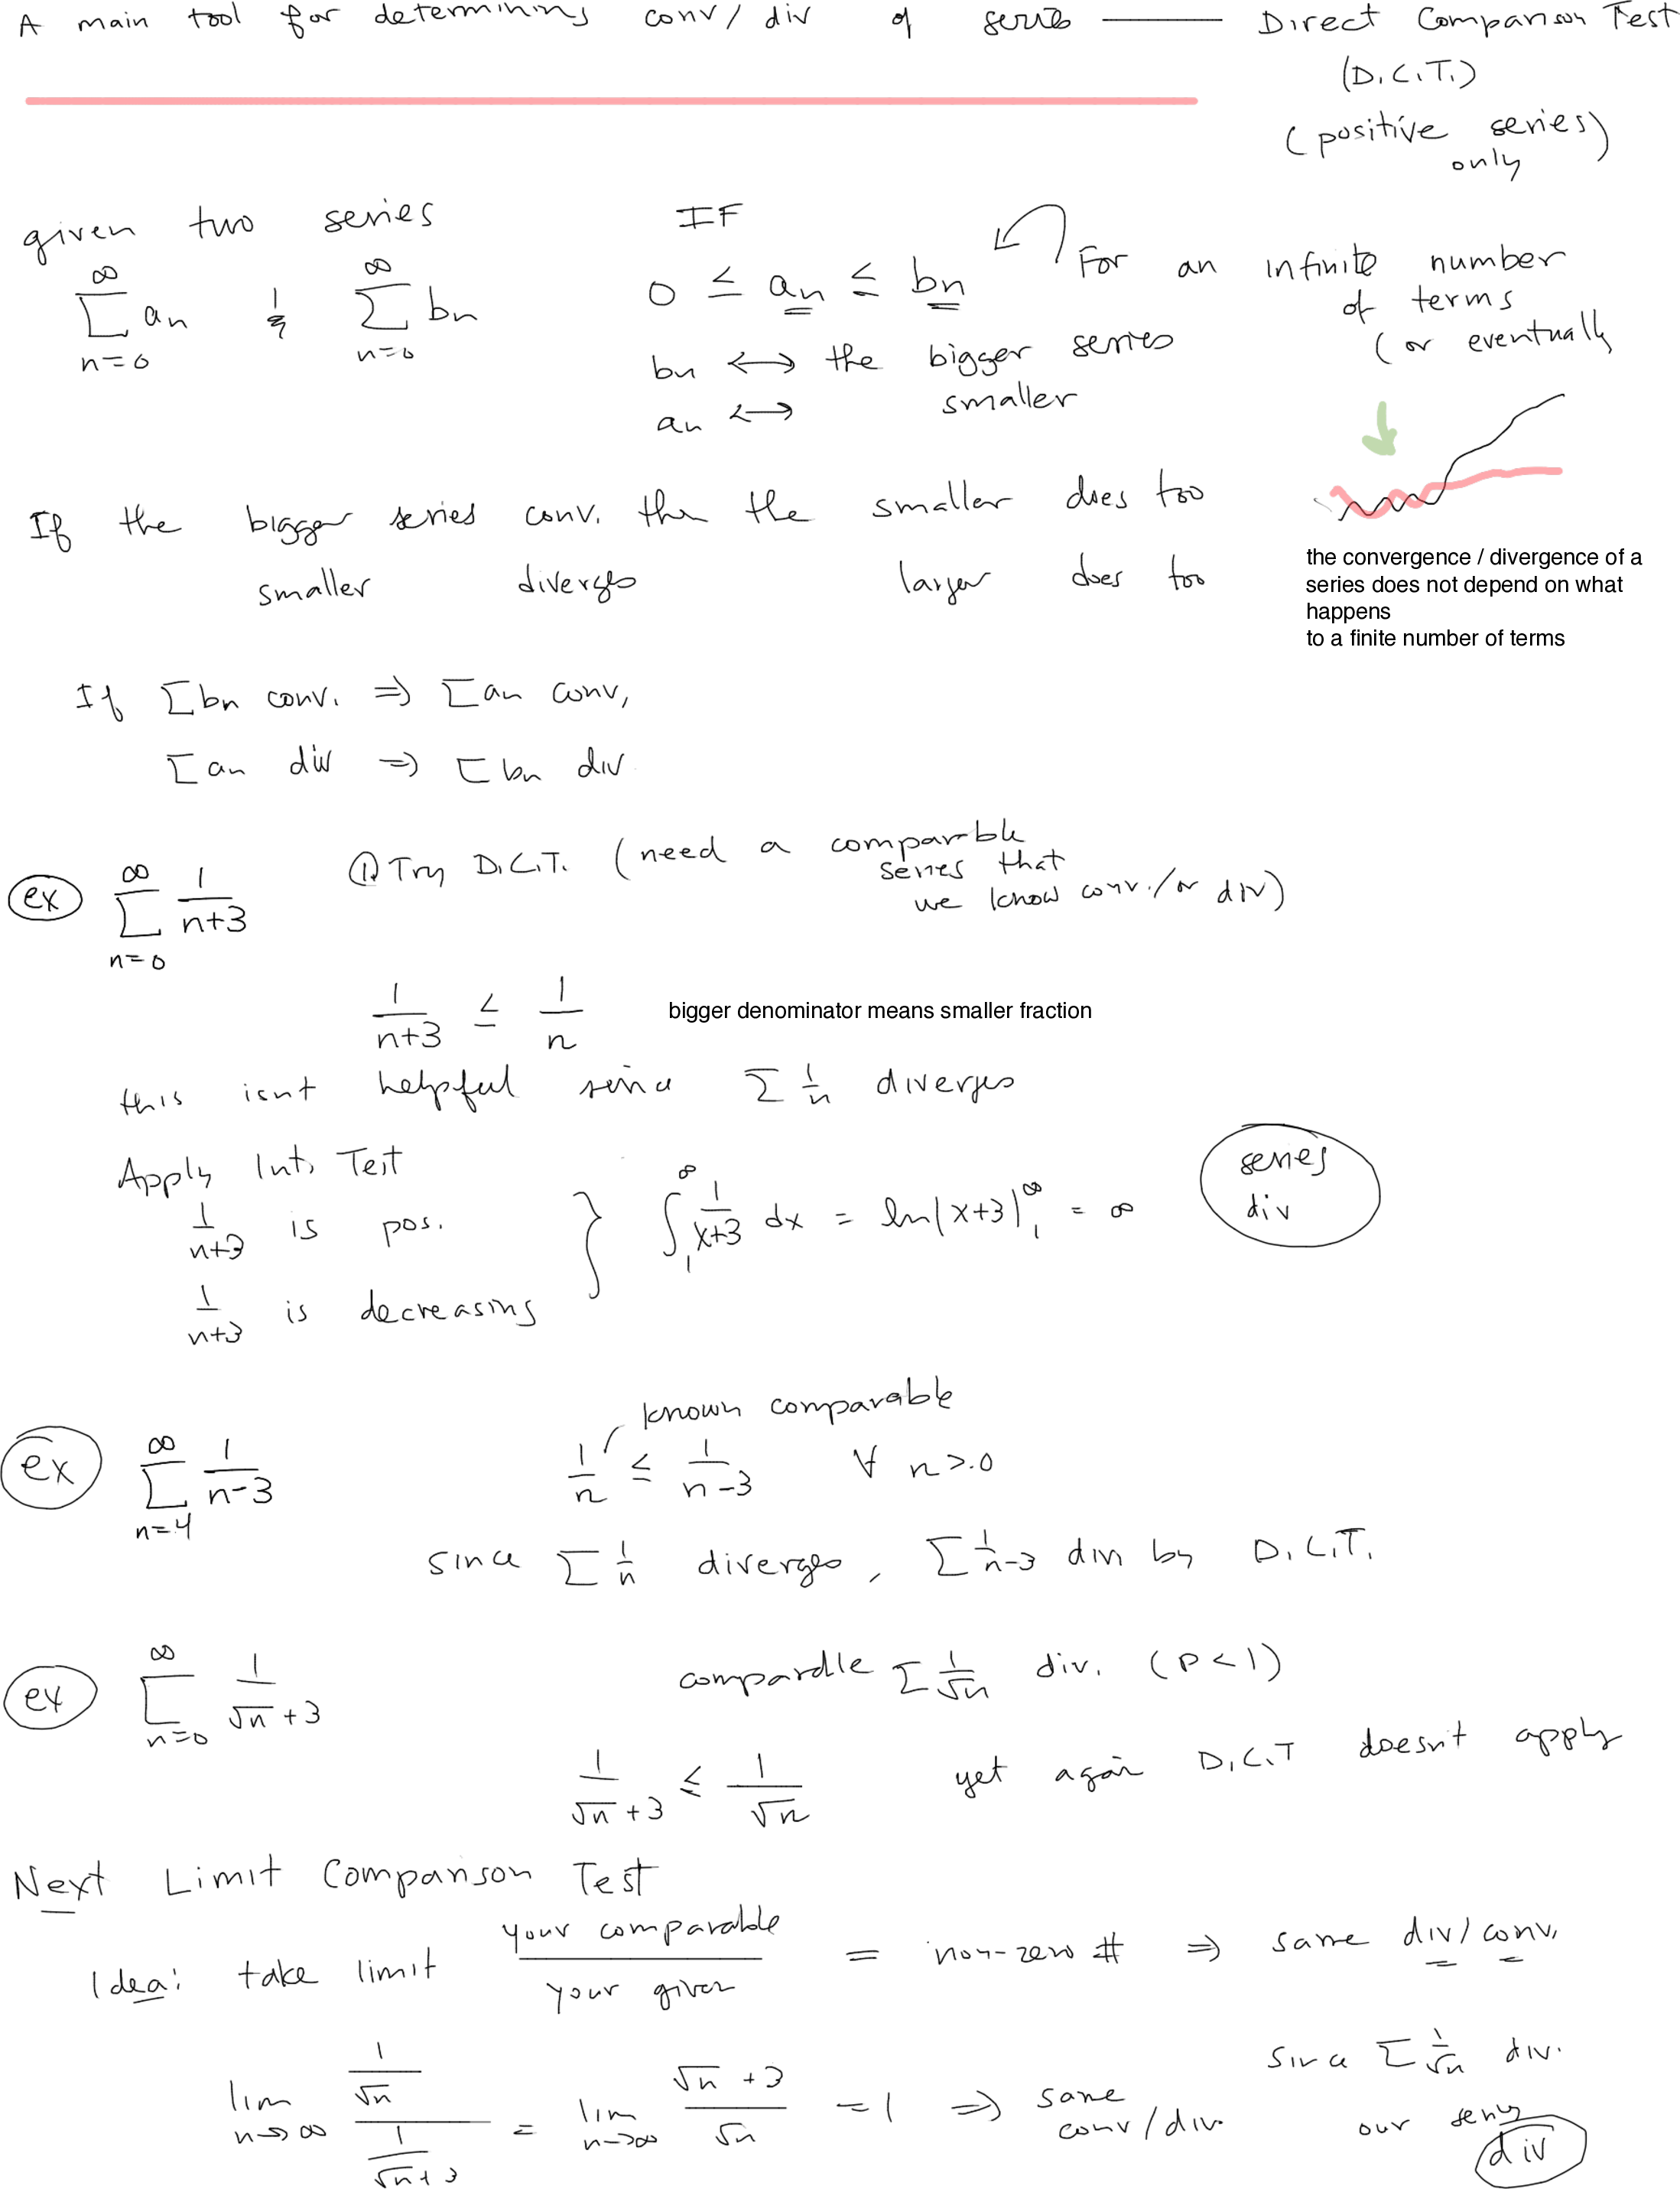 A main tool for determining conv/div of series — Direct Comparison Test
(D.C.T.)
(positive series)
only
given two series IF
∞
∑ aₙ & ∑ bₙ 0 ≤ aₙ ≤ bₙ For an infinite number
n=0 n=0 of terms
bₙ ⟷ the bigger series (or eventually
aₙ ⟷ smaller
If the bigger series conv. then the smaller does too
smaller diverges larger does too
the convergence / divergence of a
series does not depend on what
happens
to a finite number of terms
If ∑bₙ conv. ⇒ ∑aₙ conv,
∑aₙ div ⇒ ∑bₙ div
ex ∞∑n=0 1/(n+3) ① Try D.C.T. (need a comparable
series that
we know conv./or div)
1/(n+3) ≤ 1/n bigger denominator means smaller fraction
this isnt helpful since ∑ 1/n diverges
Apply Int. Test
1/(n+3) is pos.
1/(n+3) is decreasing
} ∫₁^∞ 1/(x+3) dx = ln(x+3)|₁^∞ = ∞ series
div
known comparable
ex ∞∑n=4 1/(n-3) 1/n ≤ 1/(n-3) ∀ n>0
since ∑ 1/n diverges, ∑ 1/(n-3) div by D.C.T.
ex ∞∑n=0 1/(√n + 3) comparable ∑ 1/√n div. (p<1)
1/(√n + 3) ≤ 1/√n yet again D.C.T doesn't apply
Next Limit Comparison Test
Idea: take limit your comparable / your given = non-zero # ⇒ same div/conv.
lim n→∞ (1/√n)/(1/(√n+3)) = lim n→∞ (√n + 3)/√n = 1 ⇒ same
conv/div.
since ∑ 1/√n div.
our series
div